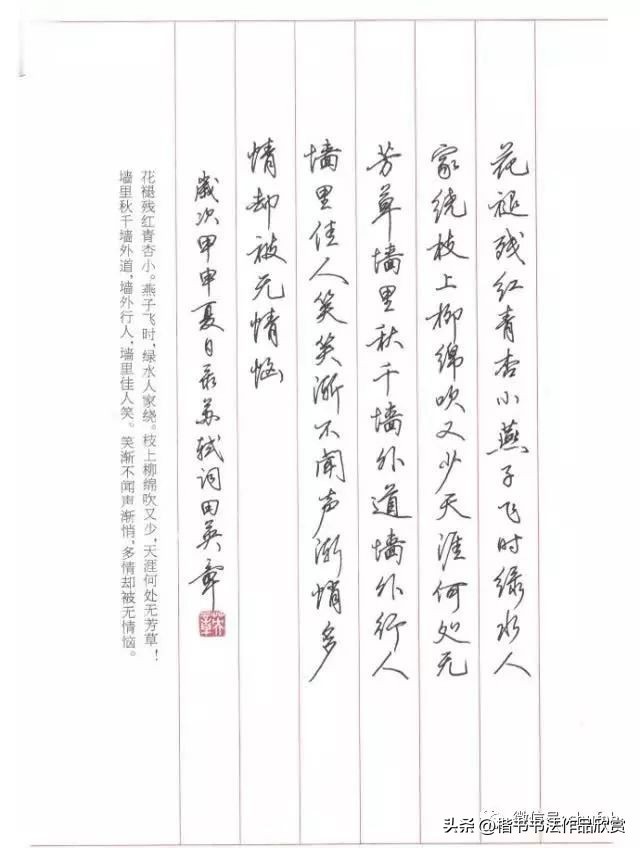 花褪残红青杏小燕子飞时绿水人
家绕枝上柳绵吹又少天涯何处无
芳草墙里秋千墙外道墙外行人
墙里佳人笑笑渐不闻声渐悄多
情却被无情恼
歲次甲申夏日录苏轼词田英章
英章
花褪残红青杏小。燕子飞时,绿水人家绕。枝上柳绵吹又少,天涯何处无芳草!
墙里秋千墙外道,墙外行人,墙里佳人笑。笑渐不闻声渐悄,多情却被无情恼。
微信号:
头条 @楷书书法作品欣赏